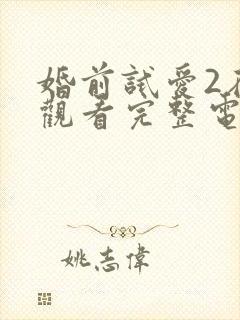 婚前試愛2
觀看完整電
姚志偉